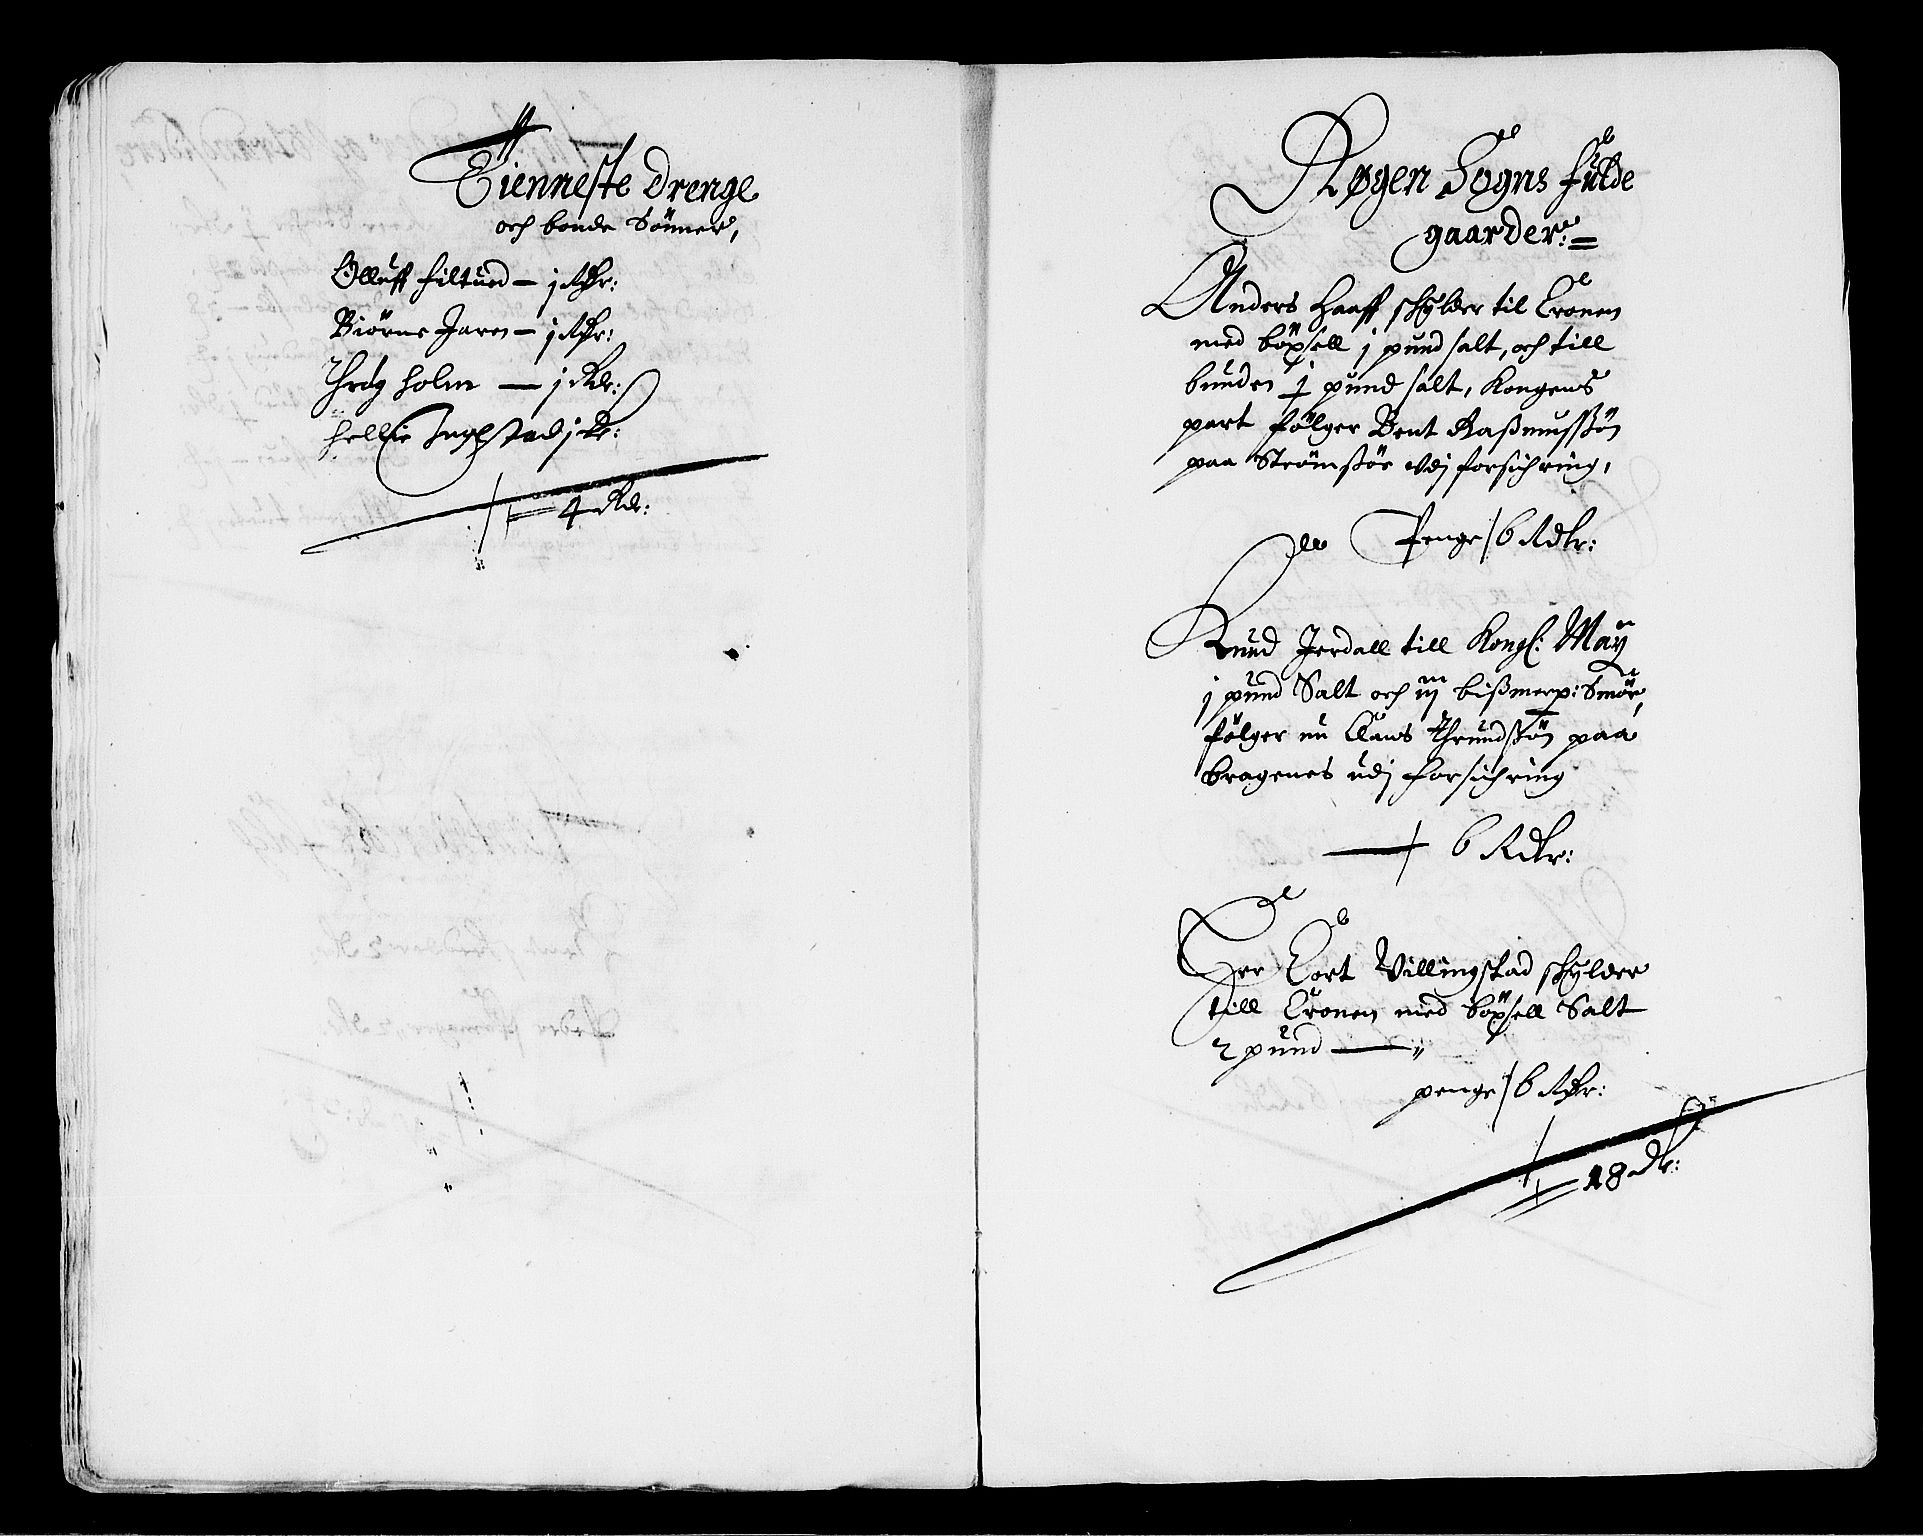 Tienneste drenge
och bonde Sönner,
Olluff Filtued — j Rdr:
Biörne Jaren — j Rdr:
holm — j Rdr:
Hellie Inghstad j Rdr:
4 Rdr:
Røgen Sogns fulde
gaarder:=
Anders Haaff schylder til Cronen
med böxsell j pund salt, och till
bunden j pund salt, Kongens
part fölger Bent Raßmussön
paa Strömßöe vdj forsichring,
Penge 6 Rdlr:
Knud Jerdall till Kongl: May
j pund Salt och iij bißmerp: Smör,
fölger nu Claus Thrundßön paa
bragenes udj forsichring
6 Rdlr:
Her Cort Villingstad schylder
till Cronen med böxsell Salt
2 pund —
penge 6 Rdr:
18 Dr: